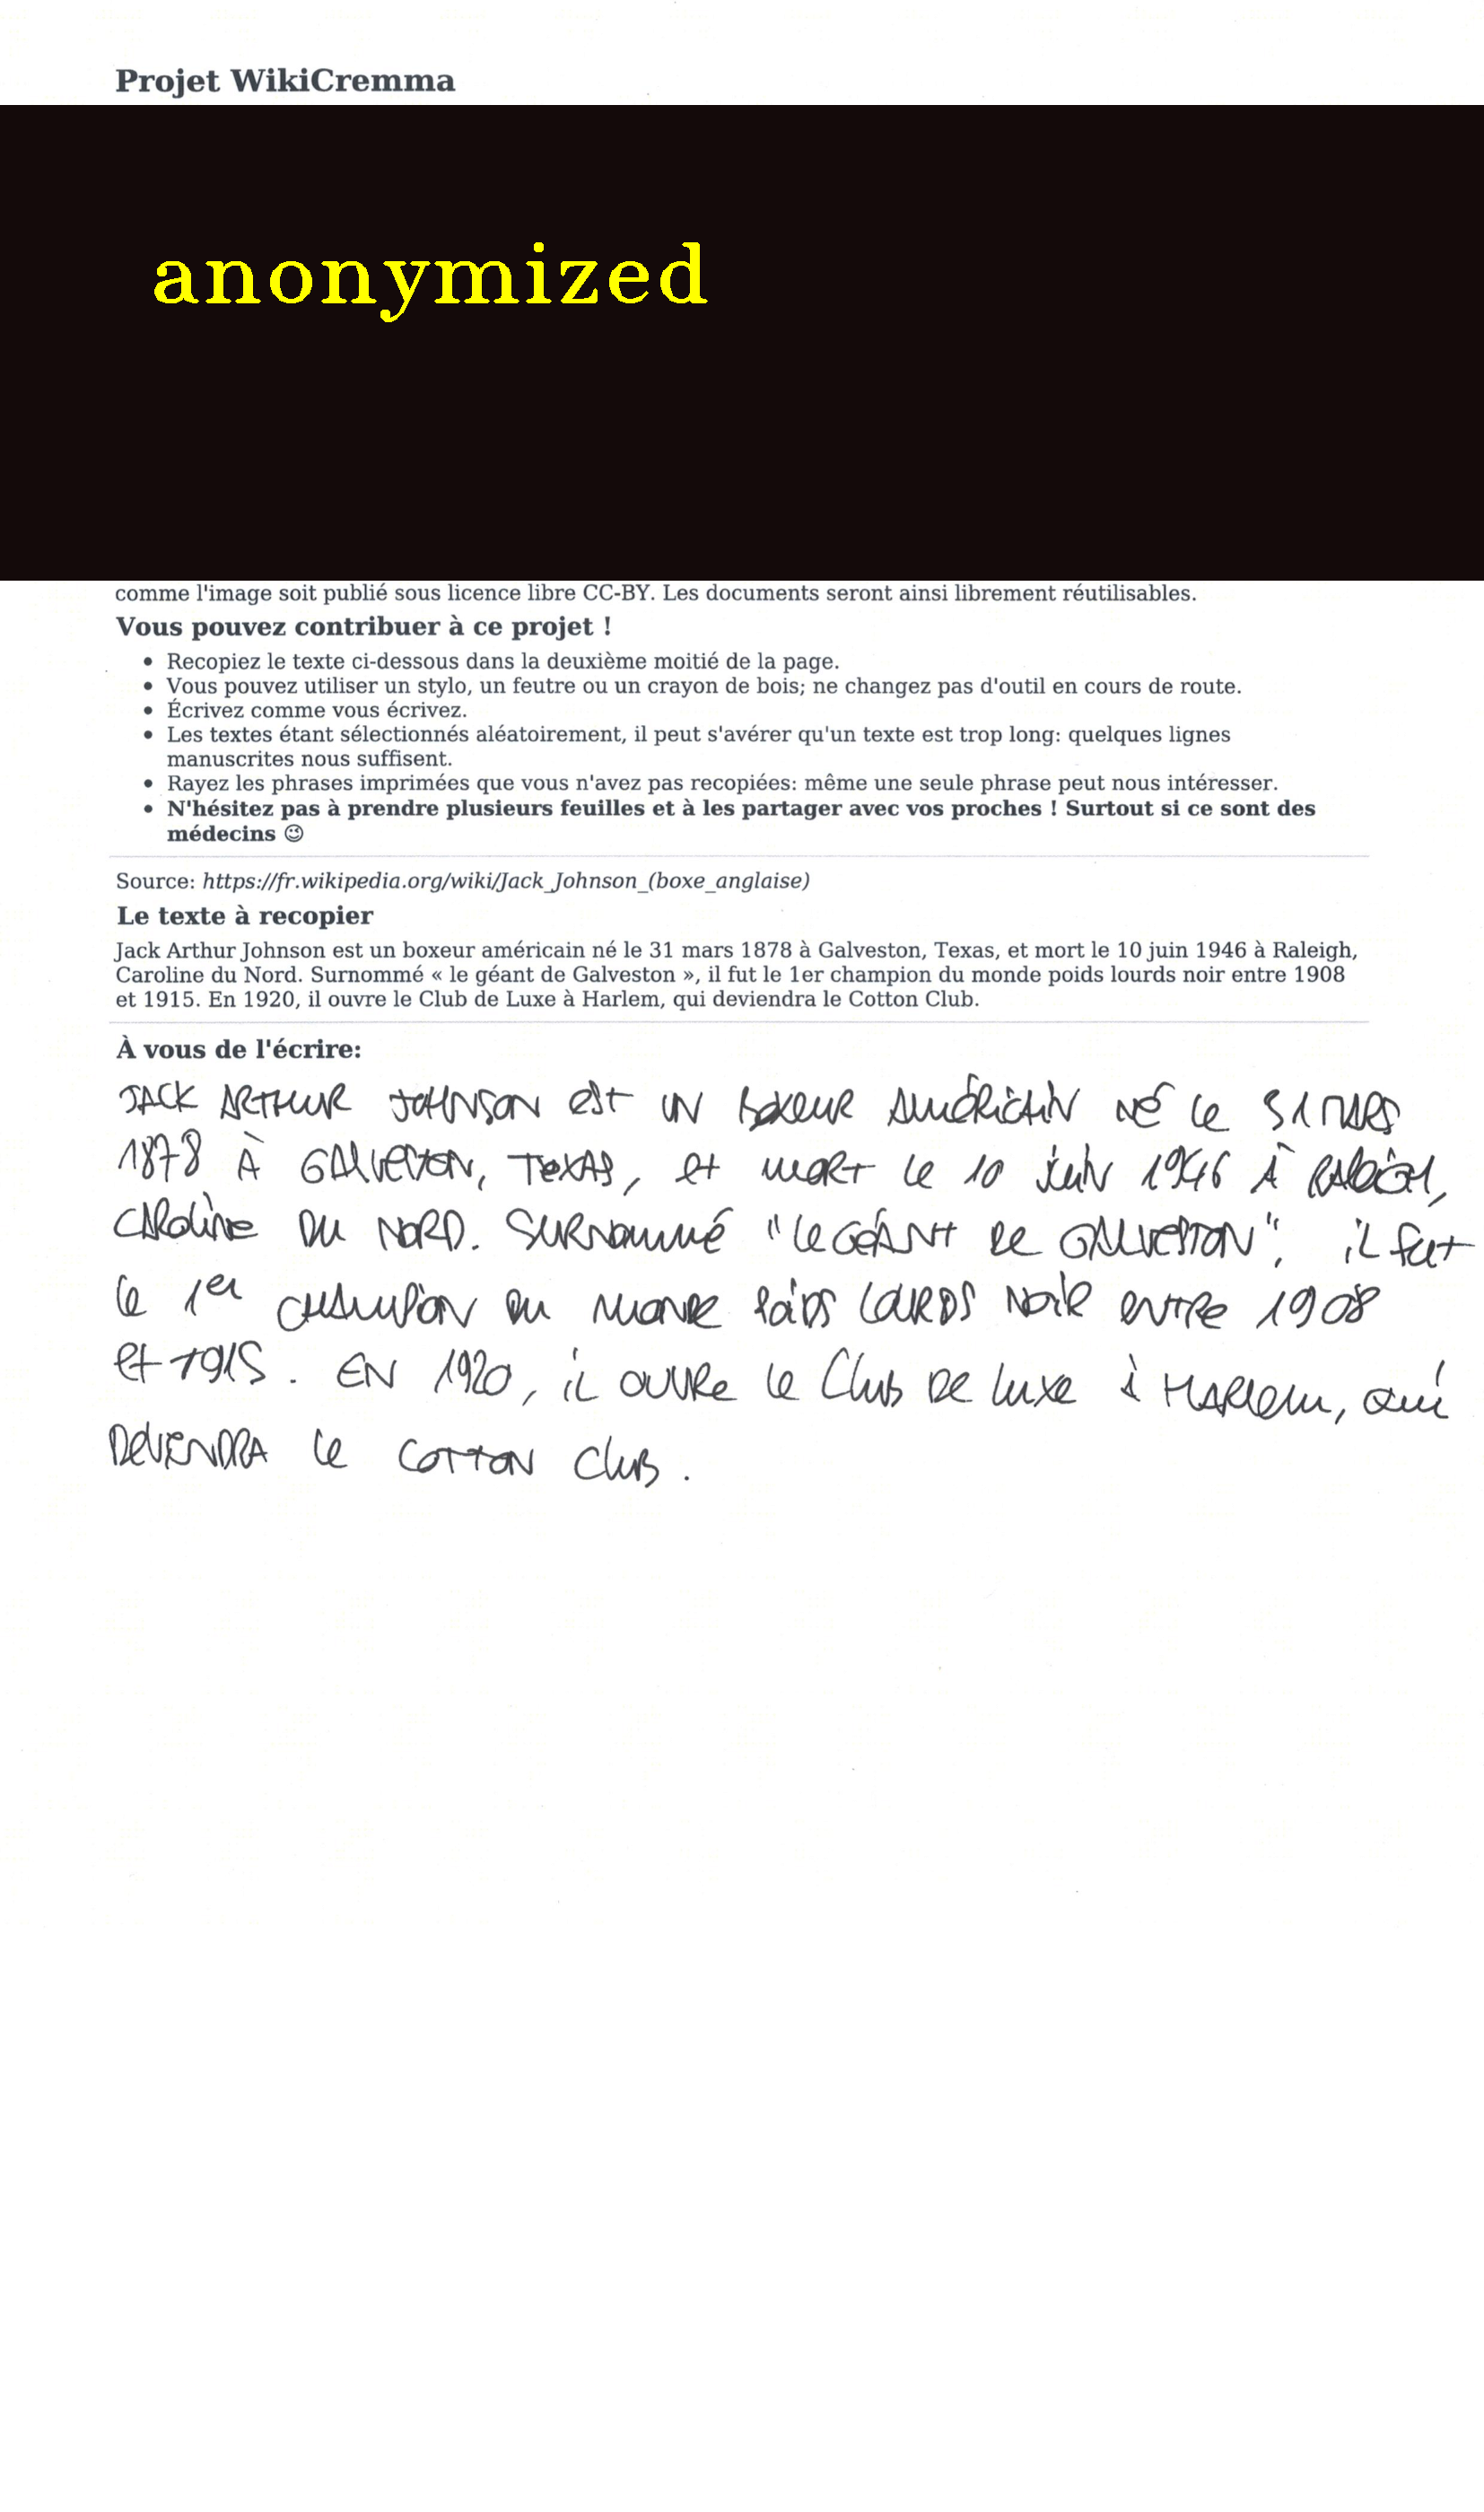 Projet WikiCremma
anonymized
comme l'image soit publié sous licence libre CC-BY. Les documents seront ainsi librement réutilisables.
Vous pouvez contribuer à ce projet !
• Recopiez le texte ci-dessous dans la deuxième moitié de la page.
• Vous pouvez utiliser un stylo, un feutre ou un crayon de bois; ne changez pas d'outil en cours de route.
• Écrivez comme vous écrivez.
• Les textes étant sélectionnés aléatoirement, il peut s'avérer qu'un texte est trop long: quelques lignes
manuscrites nous suffisent.
• Rayez les phrases imprimées que vous n'avez pas recopiées: même une seule phrase peut nous intéresser.
• N'hésitez pas à prendre plusieurs feuilles et à les partager avec vos proches ! Surtout si ce sont des
médecins 😉
Source: https://fr.wikipedia.org/wiki/Jack_Johnson_(boxe_anglaise)
Le texte à recopier
Jack Arthur Johnson est un boxeur américain né le 31 mars 1878 à Galveston, Texas, et mort le 10 juin 1946 à Raleigh,
Caroline du Nord. Surnommé « le géant de Galveston », il fut le 1er champion du monde poids lourds noir entre 1908
et 1915. En 1920, il ouvre le Club de Luxe à Harlem, qui deviendra le Cotton Club.
À vous de l'écrire:
JACK ARTHUR JOHNSON est UN BOXEUR AMÉRICAIN NÉ le 31 MARS
1878 À GALVESTON, TEXAS, et MORT le 10 juin 1946 À RALEIGH,
CAROLINE DU NORD. SURNOMMÉ "le GÉANT DE GALVESTON", il fut
le 1er CHAMPION DU MONDE POIDS LOURDS NOIR ENTRE 1908
et 1915. EN 1920, il OUVRE le Club DE luxe à HARLEM, qui
DEVIENDRA le COTTON Club.